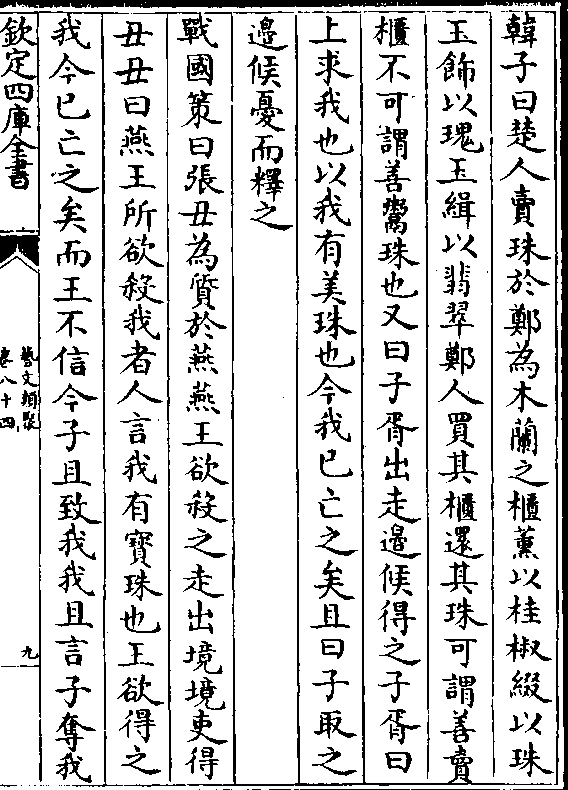 韓子曰楚人賣珠於鄭為木蘭之櫃薰以桂椒綴以珠
玉飾以瑰玉緝以翡翠鄭人買其櫃還其珠可謂善賣
櫃不可謂善鬻珠也又曰子胥出走邉候得之子胥曰
上求我也以我有美珠也今我已亡之矣且曰子取之
邉候憂而釋之
戰國策曰張丑為質於燕燕王欲殺之走出境境吏得
丑丑曰燕王所欲殺我者人言我有寶珠也王欲得之
我今已亡之矣而王不信今子且致我我且言子奪我
欽定四庫全書
藝文類聚
卷八十四
九